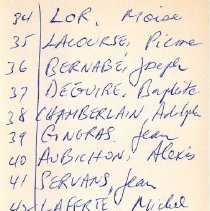 34 LOR, Moise
35 LACOURSE, Pierre
36 BERNABÉ, Joseph
37 DEGUIRE, Baptiste
38 CHAMBERLAIN, Adolph
39 GINGRAS, Jean
40 AUBICHON, Alexis
41 SERVANS, Jean
42 LAFERTÉ, Michel